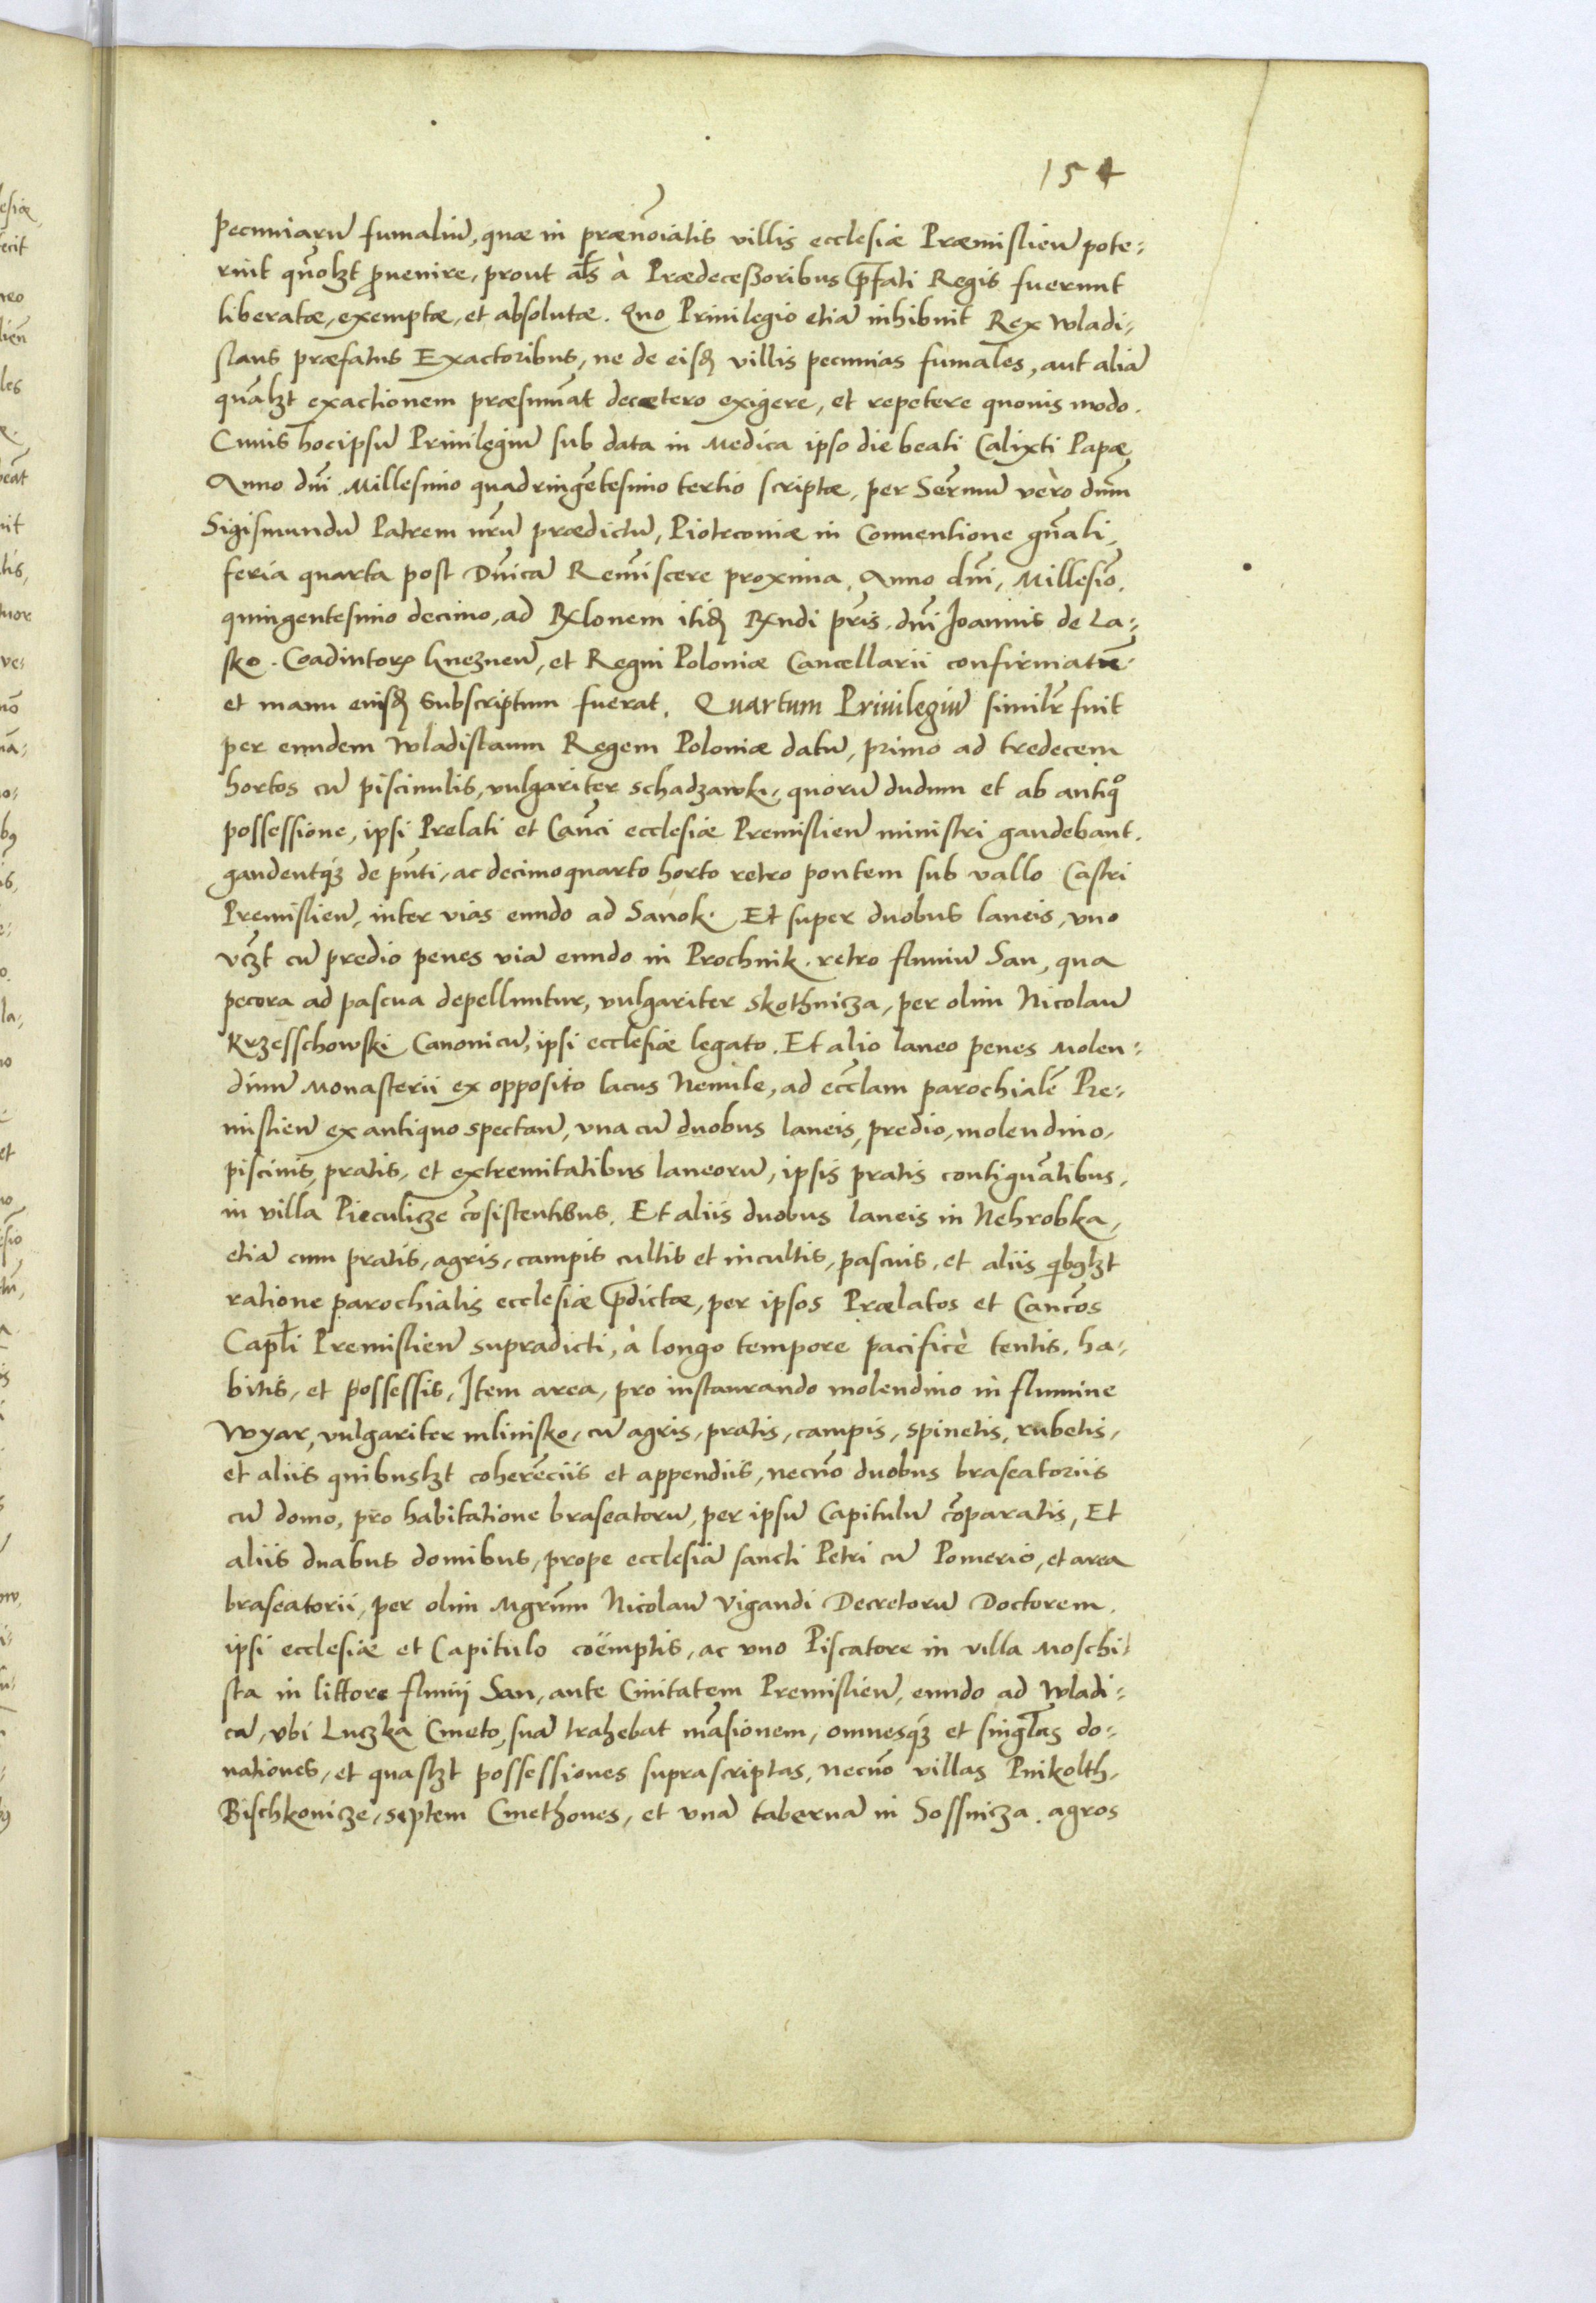 154
pecuniarũ fumaliũ, quæ in prænõiatis villis ecclesiæ Præmislieñ pote:
rint quõlzt ꝓuenire, prout al̃s à Prædeceßoribus p̃fati Regis fuerunt
liberatæ, exemptæ, et absolutæ. Quo Priuilegio etiã inhibuit Rex Wladi:
slaus præfatus Exactoribus, ne de eisd᷒ villis pecunias fumales, aut aliã
quãlzt exactionem præsumãt decætero exigere, et repetere quouis modo.
Cuius hocipsũ Priuilegiũ sub data in Medica ipso die beati Calixti Papæ
Anno dñi Millesimo quadringẽtesimo tertio scriptæ, per Serm̃ũ verò dñm
Sigismundũ Patrem ñrũ prædictũ, Piotrconiæ in Conuentione gñali,
feria quarta post Dñicã Remĩscere proxima, Anno dñi, Millesiõ.
quingentesimo decimo, ad Rx̃lonem itid᷒ Rx̃ndi pr̃is. dñi Ioannis de La:
sko. Coadiutorꝭ Gnezneñ, et Regni Poloniæ Cancellarii confirmatũ
et manu eiusd᷒ Subscriptum fuerat. Quartum Priuilegiũ similr̃ fuit
per eundem Wladislaum Regem Poloniæ datũ, primo ad tredecem
hortos cũ piscinulis, vulgariter schadzawki, quorũ dudum et ab antiqͦ
possessione, ipsi Prelati et Cañci ecclesiæ Premislieñ ministri gaudebant.
gaudentq́ꝫ de pñti, ac decimoquarto horto retro pontem sub vallo Castri
Premislieñ, inter vias eundo ad Sanok. Et super duobus laneis, vno
vcꝫt cũ predio penes viã eundo in Prochnik. retro fluuiũ San, qua
pecora ad pascua depelluntur, vulgariter Skothnicza, per olim Nicolaũ
Krzesschowski Canonicũ, ipsi ecclesiæ legato. Et alio laneo penes Molen:
dinũ Monasterii ex opposito lacus Nemile, ad eccl̃am parochialẽ Pre:
mislieñ ex antiquo spectañ, vna cũ duobus laneis, predio, molendino,
piscinis, pratis, et extremitatibus laneorũ, ipsis pratis contiguãtibus,
in villa Pieculicze cõsistentibus. Et aliis duobus laneis in Nehrobka,
etiã cum pratis, agris, campis cultis et incultis, pascuis, et aliis qibꝯlzt
ratione parochialis ecclesiæ p̃dictæ, per ipsos Prælatos et Cancõs
Capl̃i Premislieñ supradicti, à longo tempore pacificè tentis, ha:
bitis, et possessis, Item area, pro instaurando molendino in flumine
Wyar, vulgariter mlinisko, cũ agris, pratis, campis, spinetis, rubetis,
et aliis quibuslzt coherẽciis et appendiis, necnõ duobus braseatoriis
cũ domo, pro habitatione braseatorũ, per ipsũ Capitulũ cõparatis, Et
aliis duabus domibus, prope ecclesiã sancti Petri cũ Pomerio, et area
braseatorii, per olim Mgr̃um Nicolaũ Vigandi Decretorũ Doctorem,
ipsi ecclesiæ et Capitulo coëmptis, ac vno Piscatore in villa Moschi:
ska in littore fluuij San, ante Ciuitatem Premislieñ, eundo ad Wladi:
cã, vbi Luczka Cmeto, suã trahebat mãsionem, omnesq́ꝫ et sing̃las do:
nationes, et quaslzt possessiones suprascriptas, necnõ villas Pnikolth,
Bischkonicze, septem Cmethones, et vnã tabernã in Sossnicza. agros